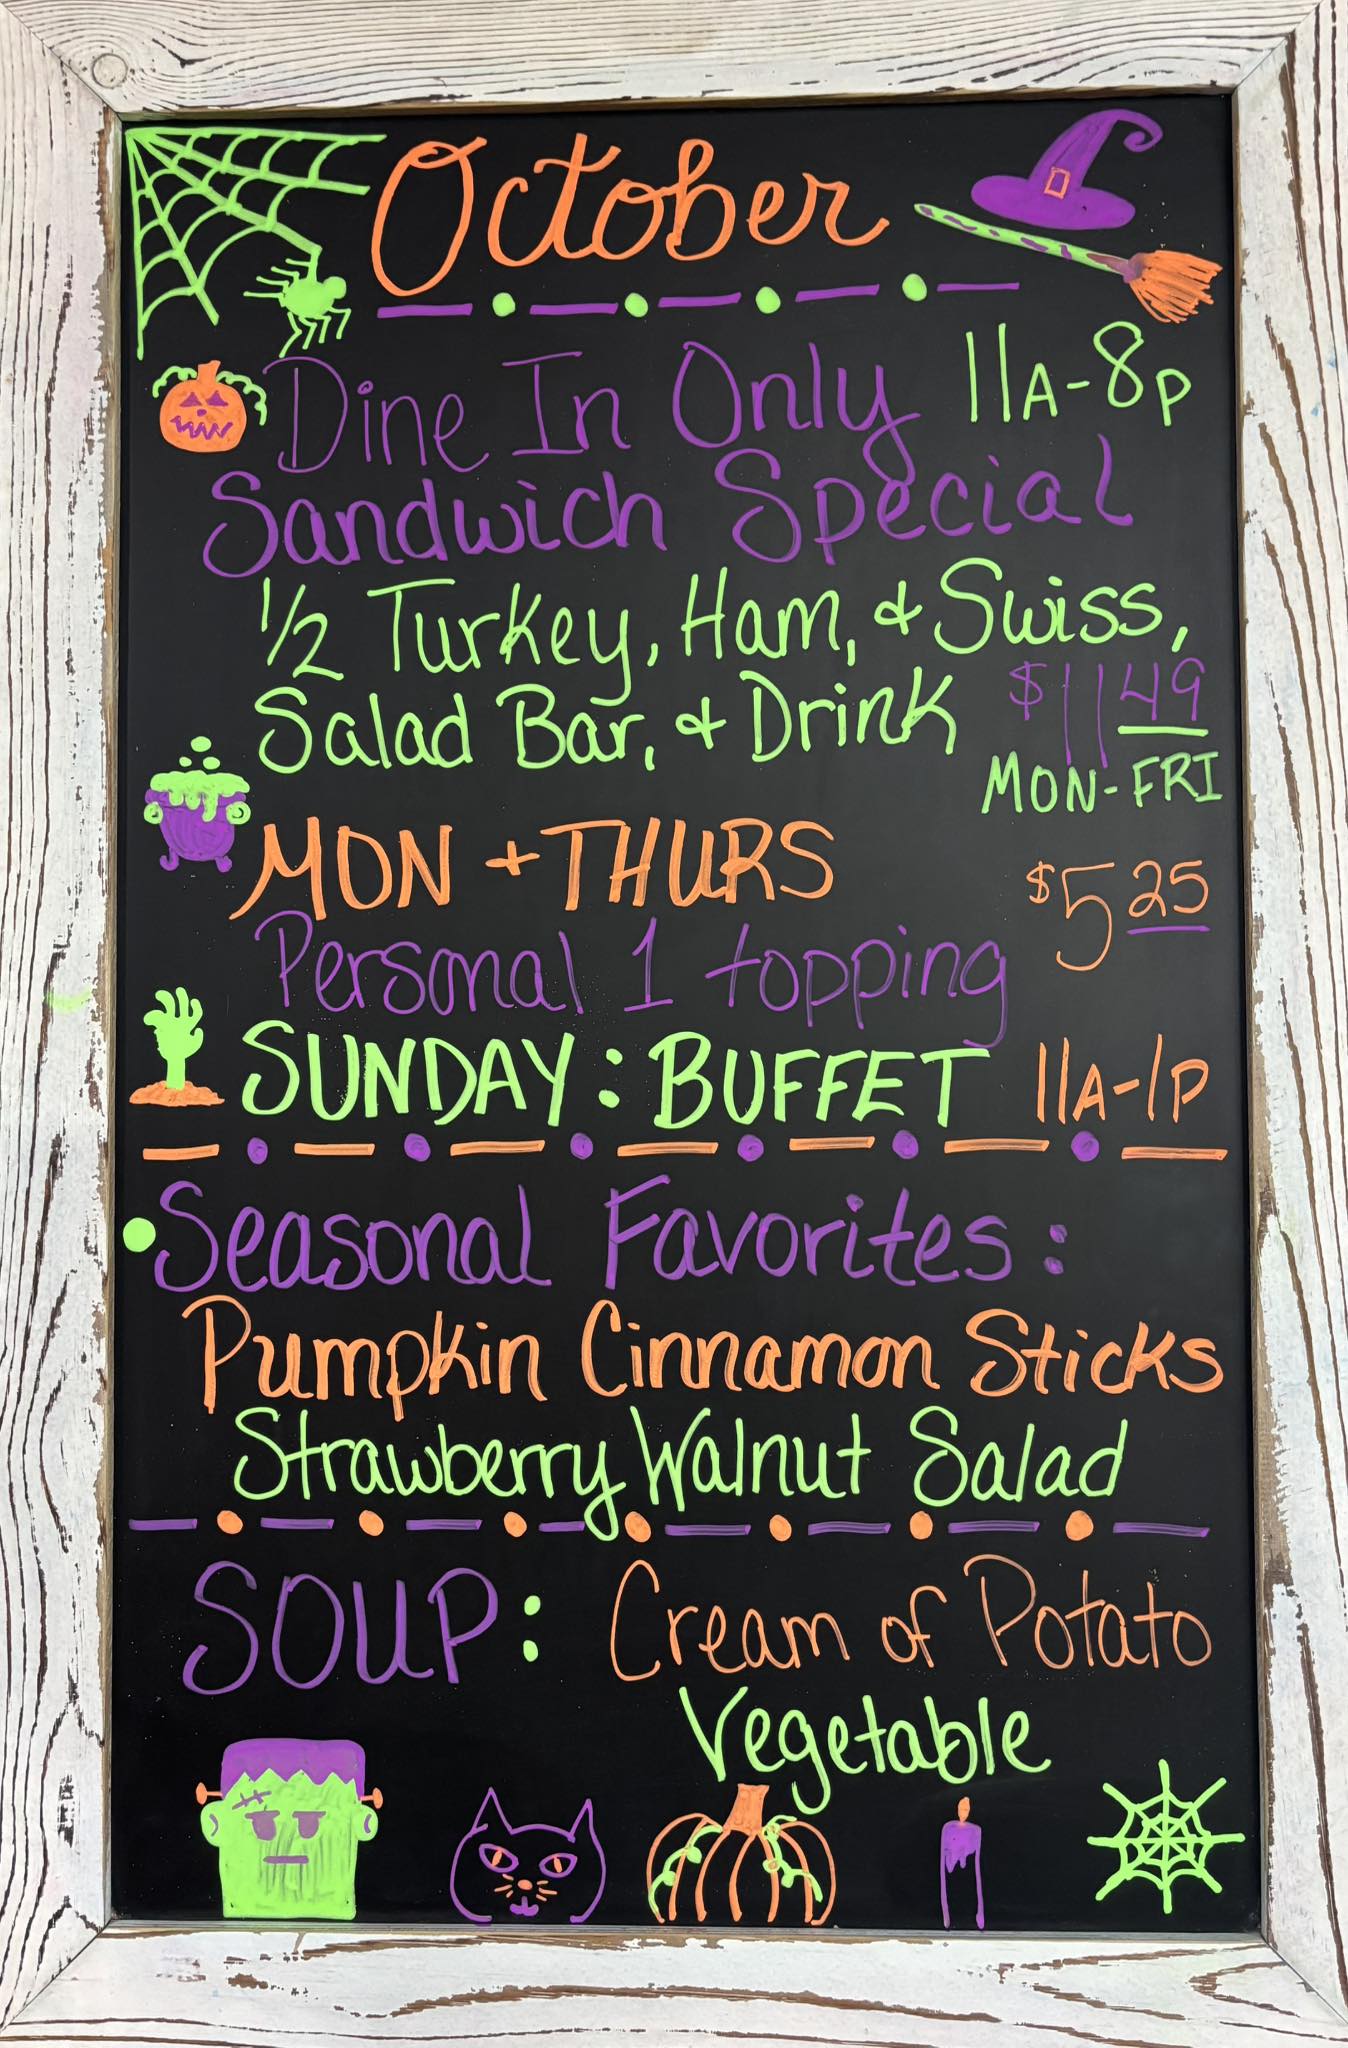 October
Dine In Only 11A-8P
Sandwich Special
1/2 Turkey, Ham, & Swiss,
Salad Bar, & Drink $11 49
MON-FRI
MON + THURS $5 25
Personal 1 topping
SUNDAY: BUFFET 11A-1P
Seasonal Favorites:
Pumpkin Cinnamon Sticks
Strawberry Walnut Salad
SOUP: Cream of Potato
Vegetable